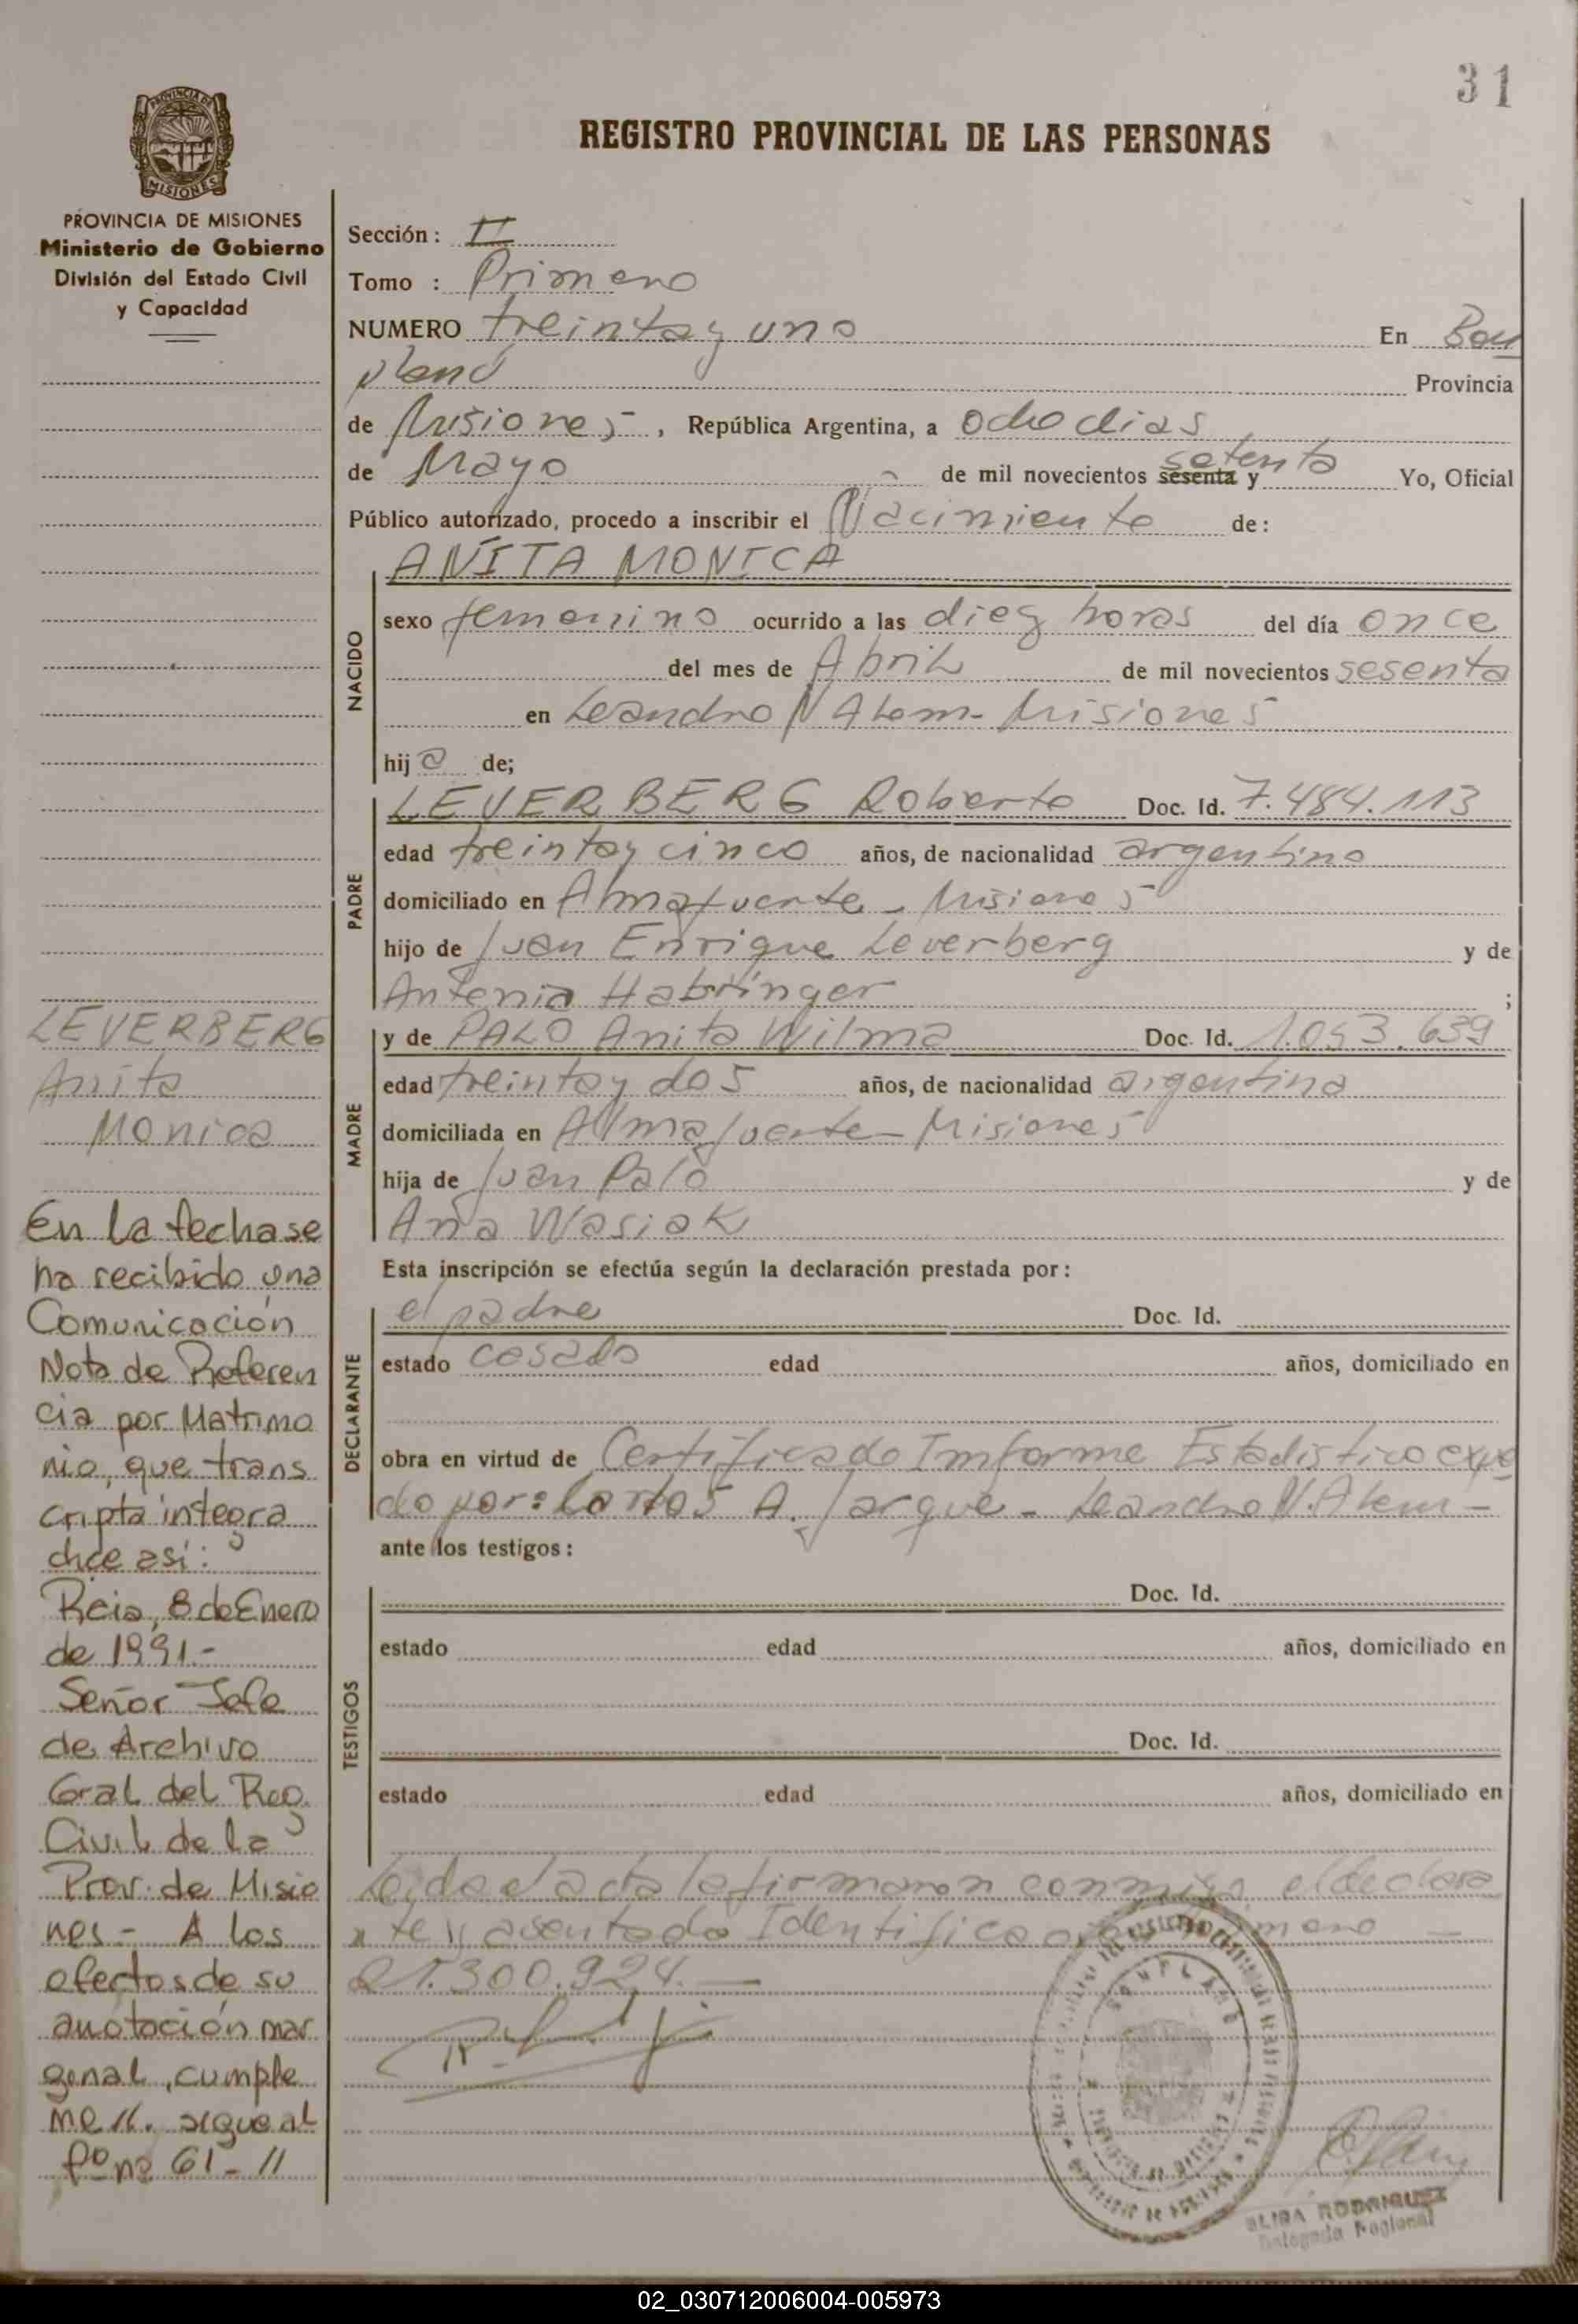 31
REGISTRO PROVINCIAL DE LAS PERSONAS
PROVINCIA DE MISIONES
MISIONES
PROVINCIA DE MISIONES
Ministerio de Gobierno
División del Estado Civil
y Capacidad
LEVERBERG
Anita
Monica
En la fecha se
ha recibido una
Comunicación
Nota de Referen
cia por Matrimo
nio, que trans
cripta integra
dice asi:
Rcia, 8 de Enero
de 1991.-
Señor Jefe
de Archivo
Gral del Reg.
Civil de la
Prov. de Misio
nes - A los
efectos de su
anotación mar
ginal, cumple
me //. sigue al
fº nº 61-11
Sección: II
Tomo : Primero
NUMERO treinta y uno En Bon
pland Provincia
de Misiones, República Argentina, a Ocho dias
de Mayo de mil novecientos sesenta y setenta Yo, Oficial
Público autorizado, procedo a inscribir el Nacimiento de:
NACIDO
ANITA MONICA
sexo femenino ocurrido a las diez horas del día once
del mes de Abril de mil novecientos sesenta
en Leandro N Alem - Misiones
hij a de;
PADRE
LEVERBERG Roberto Doc. Id. 7.484.113
edad treinta y cinco años, de nacionalidad argentino
domiciliado en Almafuerte - Misiones
hijo de Juan Enrique Leverberg y de
Antonia Habringer ;
MADRE
y de PALO Anita Wilma Doc. Id. 1.053.639
edad treinta y dos años, de nacionalidad argentina
domiciliada en Almafuerte - Misiones
hija de Juan Palo y de
Ana Wasiak
Esta inscripción se efectúa según la declaración prestada por:
DECLARANTE
el padre Doc. Id.
estado casado edad años, domiciliado en
obra en virtud de Certificado Imforme Estadistico expe
do por: Carlos A. Jarque - Leandro N. Alem -
ante los testigos:
TESTIGOS
Doc. Id.
estado edad años, domiciliado en
Doc. Id.
estado edad años, domiciliado en
Leida el acta la firmaron conmigo el declara
nte y asentado Identifico
21.300.924.-
BONPLAND
ELIDA RODRIGUEZ
Delegada Regional
02_030712006004-005973